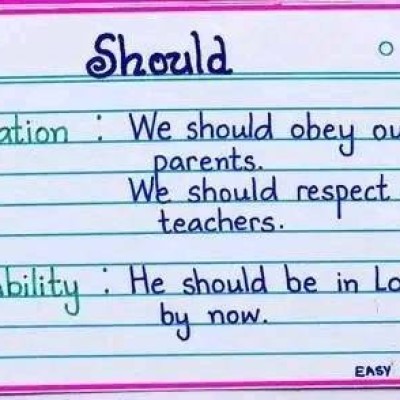 Should
ation : We should obey ou
parents.
We should respect
teachers.
ability : He should be in Lo
by now.
EASY